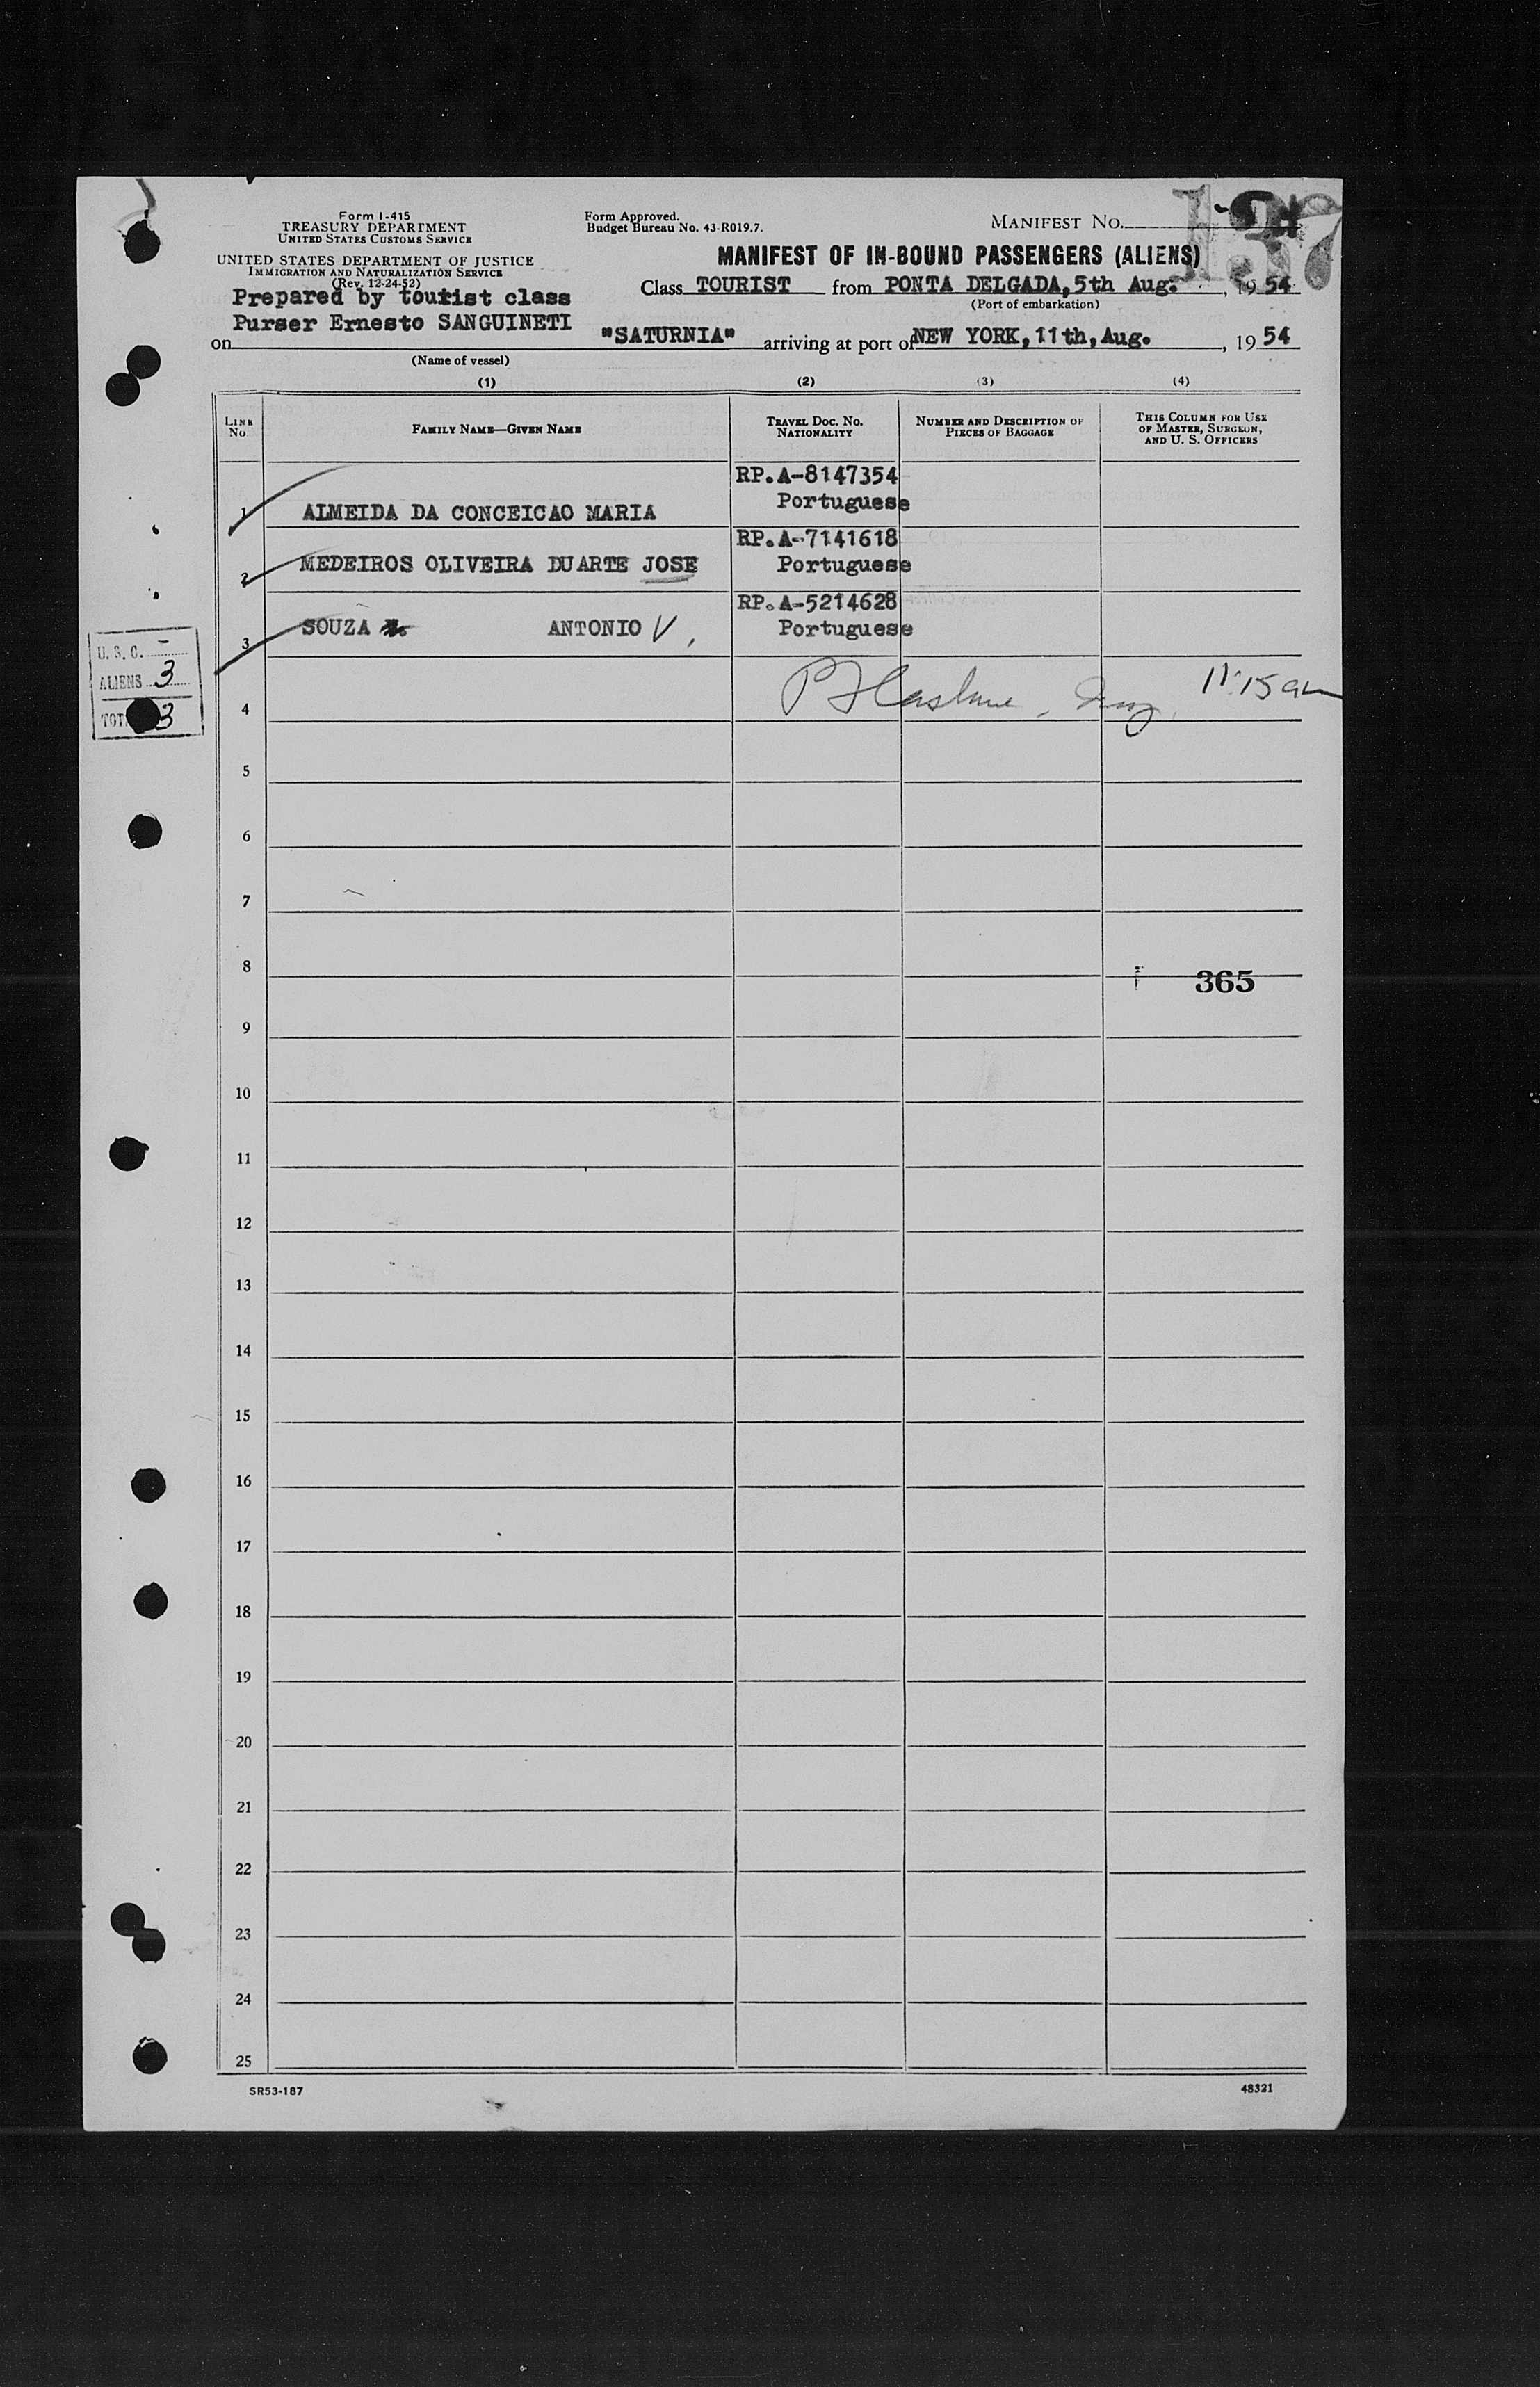 Form I-415
TREASURY DEPARTMENT
UNITED STATES CUSTOMS SERVICE
UNITED STATES DEPARTMENT OF JUSTICE
IMMIGRATION AND NATURALIZATION SERVICE
(Rev. 12-24-52)
Form Approved.
Budget Bureau No. 43-R019.7.
MANIFEST NO.
137
MANIFEST OF IN-BOUND PASSENGERS (ALIENS)
Prepared by tourist class
Purser Ernesto SANGUINETI
Class TOURIST from PONTA DELGADA, 5th Aug. , 19 54
(Port of embarkation)
on "SATURNIA" arriving at port of NEW YORK, 11th, Aug. , 19 54
(Name of vessel)
(1) (2) (3) (4)
LINE No. FAMILY NAME—GIVEN NAME TRAVEL DOC. NO. NATIONALITY NUMBER AND DESCRIPTION OF PIECES OF BAGGAGE THIS COLUMN FOR USE OF MASTER, SURGEON, AND U. S. OFFICERS
RP.A-8147354
1 ALMEIDA DA CONCEICAO MARIA Portuguese
RP.A-7141618
2 MEDEIROS OLIVEIRA DUARTE JOSE Portuguese
RP.A-5214628
3 SOUZA ANTONIO V. Portuguese
U. S. C. -
ALIENS 3
TOT 3
4 11:15 am
5
6
7
8
365
9
10
11
12
13
14
15
16
17
18
19
20
21
22
23
24
25
SR53-187
48321